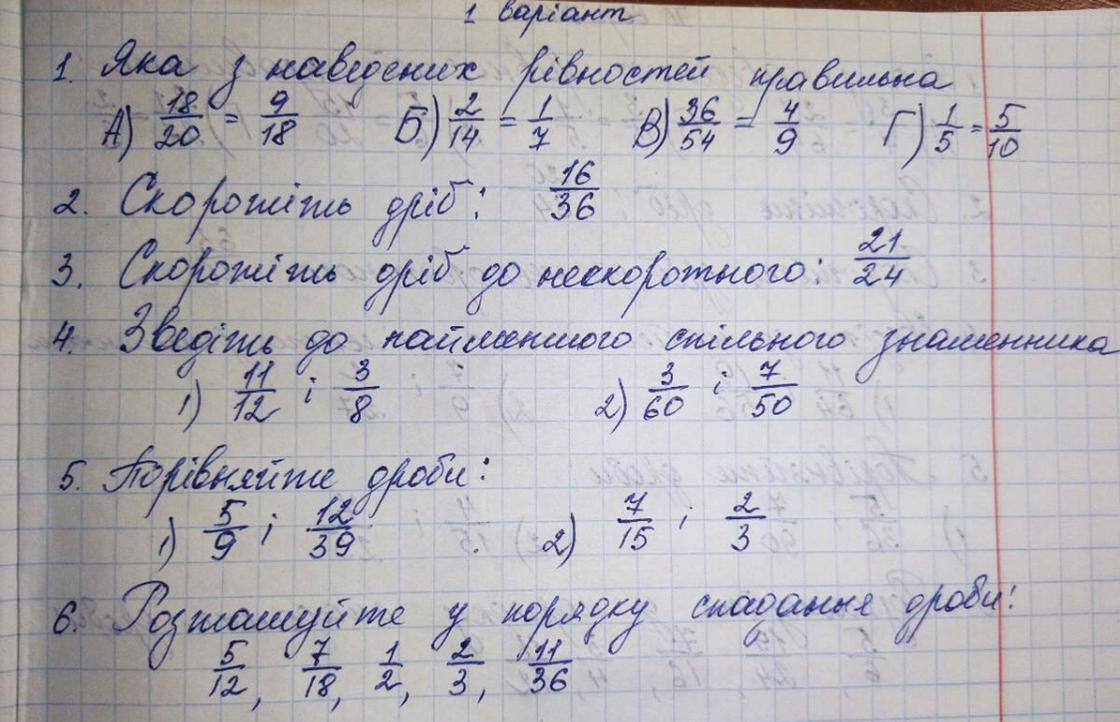 1 варіант
1. Яка з наведених рівностей правильна
А) 18/20 = 9/18 Б) 2/14 = 1/7 В) 36/54 = 4/9 Г) 1/5 = 5/10
2. Скоротіть дріб: 16/36
3. Скоротіть дріб до нескоротного: 21/24
4. Зведіть до найменшого спільного знаменника
1) 11/12 і 3/8 2) 3/60 і 7/50
5. Порівняйте дроби:
1) 5/9 і 12/39 2) 7/15 і 2/3
6. Розташуйте у порядку спадання дроби:
5/12, 7/18, 1/2, 2/3, 11/36